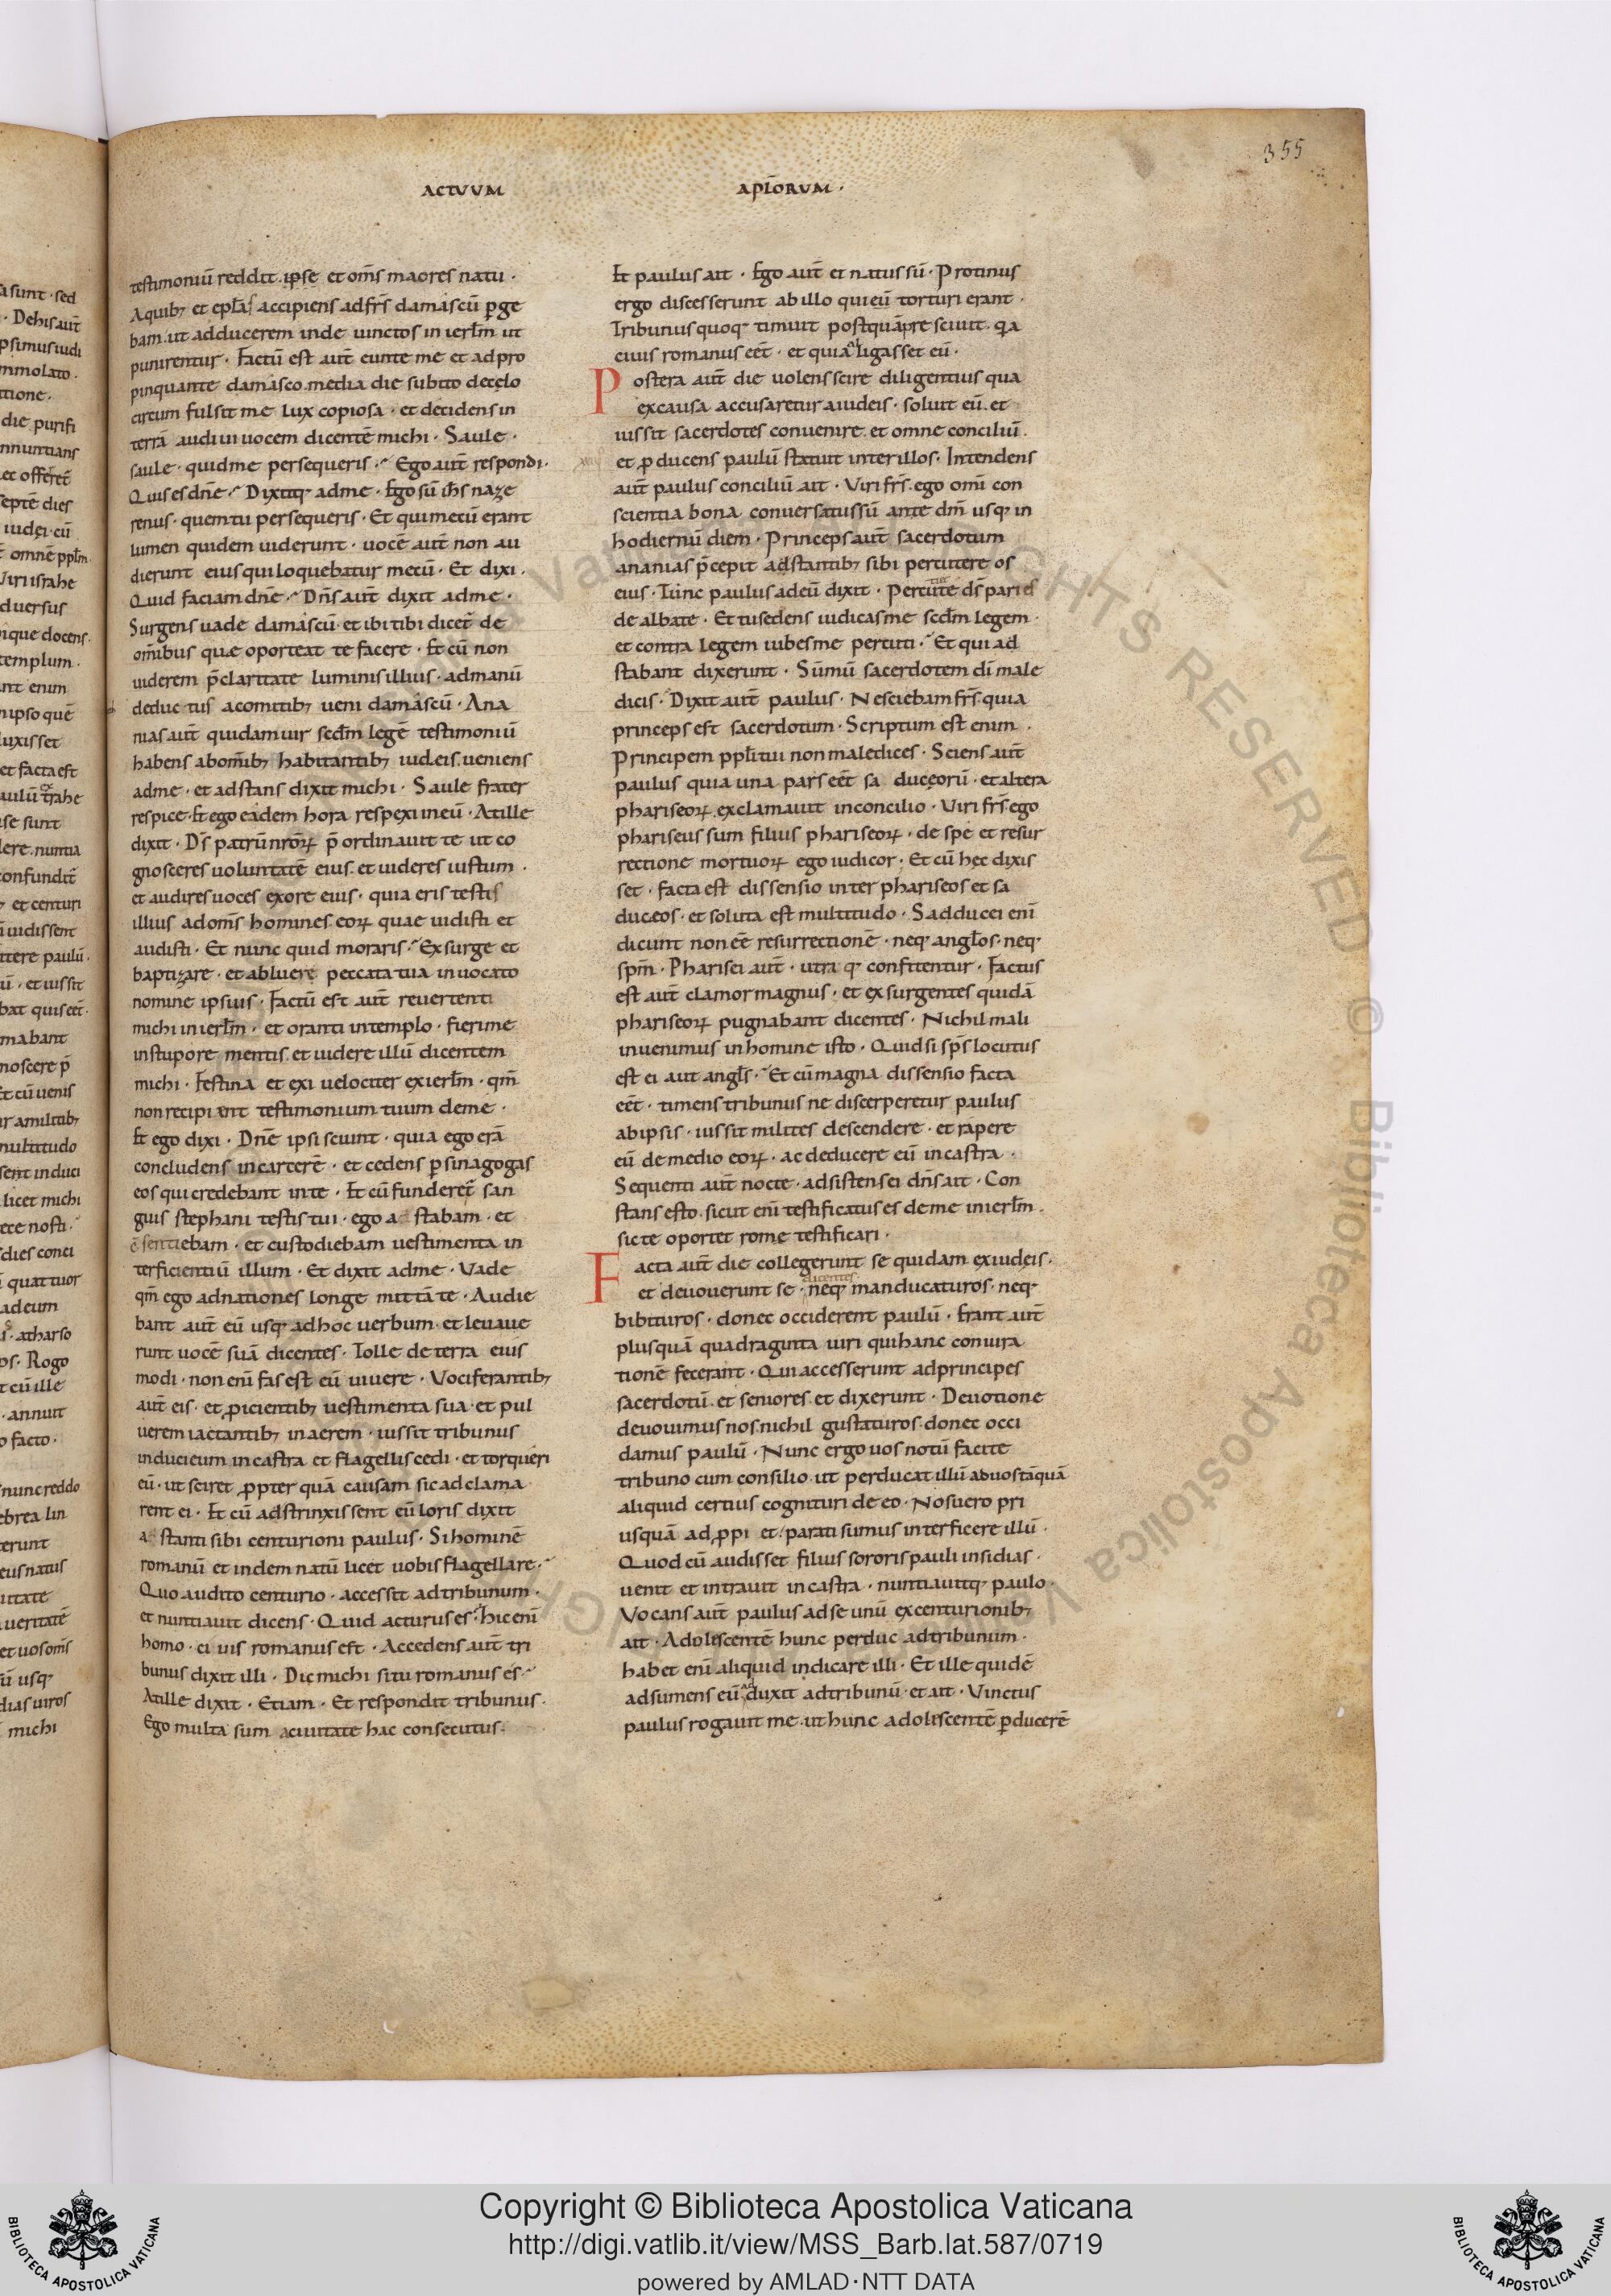 355
ACTVVM APL̅ORVM ·
testimoniū reddit ipse et om̅s maores natu ·
A quib; et ep̅las accipiens ad fr̅s damascū ꝑge
bam ut adducerem inde uinctos in ierl̅m ut
punirentur · Factū est aut̅ eunte me et ad pro
pinquante damasco media die subito de cęlo
circum fulsit me lux copiosa · et decidens in
terrā audiui uocem dicentē michi · Saule ·
saule · quid me persequeris · Ego aut̅ respondi ·
Quis es dn̅e · Dixitq; ad me · Ego sū ih̅s naze
renus · quem tu persequeris · Et qui mecū erant
lumen quidem uiderunt · uocē aut̅ non au
dierunt eius qui loquebatur mecū · Et dixi ·
Quid faciam dn̅e · Dn̅s aut̅ dixit ad me ·
Surgens uade damascū · et ibi tibi dicet̅ de
om̅ibus quæ oporteat te facere · Et cū non
uiderem p̅ claritate luminis illius · ad manū
deductus a comitib; ueni damascū · Ana
nias aut̅ quidam uir scd̅m legē testimoniū
habens ab om̅ib; habitantib; iudeis ueniens
ad me · et adstans dixit michi · Saule frater
respice · Et ego eadem hora respexi in eū · At ille
dixit · Ds̅ patrū nr̅oꝝ p̅ordinauit te ut co
gnosceres uoluntatē eius et uideres iustum ·
et audires uoces ex ore eius · quia eris testis
illius ad om̅s homines eoꝝ quae uidisti et
audisti · Et nunc quid moraris · Exsurge et
baptizare · et abluere peccata tua inuocato
nomine ipsius · Factū est aut̅ reuertenti
michi in ierl̅m · et oranti in templo · fieri me
in stupore mentis et uidere illū dicentem
michi · Festina et exi uelociter ex ierl̅m · qm̅
non recipient testimonium tuum de me ·
Et ego dixi · Dn̅e ipsi sciunt · quia ego erā
concludens in carcerē · et cedens ꝑ sinagogas
eos qui credebant in te · Et cū funderet̅ san
guis stephani testis tui · ego a stabam · et
c̅sentiebam · et custodiebam uestimenta in
terficientiū illum · Et dixit ad me · Vade
qm̅ ego ad nationes longe mittā te · Audie
bant aut̅ eū usq; ad hoc uerbum et leuaue
runt uocē suā dicentes · Tolle de terra eius
modi · non eni̅ fas est eū uiuere · Vociferantib;
aut̅ eis · et ꝓicientib; uestimenta sua et pul
uerem iactantib; in aerem · iussit tribunus
induci eum in castra et flagellis cedi · et torqueri
eū · ut sciret ꝓpter quā causam sic adclama
rent ei · Et cū adstrinxissent eū loris dixit
a stanti sibi centurioni paulus · Si hominē
romanū et indemnatū licet uobis flagellare ·
Quo audito centurio · accessit ad tribunum ·
et nuntiauit dicens · Quid acturus es · hic eni̅
homo · ciuis romanus est · Accedens aut̅ tri
bunus dixit illi · Dic michi si tu romanus es ·
At ille dixit · Etiam · Et respondit tribunus ·
Ego multa sum a ciuitate hac consecutus ·
Et paulus ait · Ego aut̅ et natus sū · Protinus
ergo discesserunt ab illo qui eū torturi erant ·
Tribunus quoq; timuit postquā presciuit · qa
ciuis romanus eēt · et quia alligasset eū ·
Postera aut̅ die uolens scire diligentius qua
ex causa accusaretur a iudeis · soluit eū et
iussit sacerdotes conuenire et omne conciliū ·
et ꝓducens paulū statuit inter illos · Intendens
aut̅ paulus conciliū ait · Viri fr̅s ego omi̅ con
scientia bona conuersatus sū ante dm̅ usq; in
hodiernū diem · Princeps aut̅ sacerdotum
ananias p̅cepit adstantib; sibi percutere os
eius · Tunc paulus ad eū dixit · Percutiet te ds̅ paries
dealbate · Et tu sedens iudicas me scd̅m legem ·
et contra legem iubes me percuti · Et qui ad
stabant dixerunt · Sūmū sacerdotem di̅ male
dicis · Dixit aut̅ paulus · Nesciebam fr̅s quia
princeps est sacerdotum · Scriptum est enim ·
Principem ppl̅i tui non maledices · Sciens aut̅
paulus quia una pars eēt saduceorū · et altera
phariseoꝝ exclamauit in concilio · Viri fr̅s ego
phariseus sum filius phariseoꝝ · de spe et resur
rectione mortuoꝝ ego iudicor · Et cū hęc dixis
set · facta est dissensio inter phariseos et sa
duceos · et soluta est multitudo · Sadducei eni̅
dicunt non eē resurrectionē · neq; angl̅os · neq;
spm̅ · Pharisei aut̅ · utraq; confitentur · Factus
est aut̅ clamor magnus · et exsurgentes quidā
phariseoꝝ pugnabant dicentes · Nichil mali
inuenimus in homine isto · Quid si sps̅ locutus
est ei aut angl̅s · Et cū magna dissensio facta
eēt · timens tribunus ne discerperetur paulus
ab ipsis · iussit milites descendere · et rapere
eū de medio eoꝝ · ac deducere eū in castra ·
Sequenti aut̅ nocte · adsistens ei dn̅s ait · Con
stans esto sicut eni̅ testificatus es de me in ierl̅m ·
sic te oportet rome testificari ·
Facta aut̅ die collegerunt se quidam ex iudeis ·
dicentes
et deuouerunt se · neq; manducaturos · neq;
bibituros · donec occiderent paulū · Erant aut̅
plus quā quadraginta uiri qui hanc coniura
tionē fecerant · Qui accesserunt ad principes
sacerdotū et seniores et dixerunt · Deuotione
deuouimus nos nichil gustaturos donec occi
damus paulū · Nunc ergo uos notū facite
tribuno cum consilio ut perducat illū ad uos tāquā
aliquid certius cognituri de eo · Nos uero pri
usquā adꝓpiet parati sumus interficere illū ·
Quod cū audisset filius sororis pauli insidias ·
uenit et intrauit in castra · nuntiauitq; paulo ·
Vocans aut̅ paulus ad se unū ex centurionib;
ait · Adolescentē hunc perduc ad tribunum ·
habet eni̅ aliquid indicare illi · Et ille quidē
adsumens eū adduxit ad tribunū et ait · Vinctus
paulus rogauit me ut hunc adolescentē ꝑducerē
Copyright © Biblioteca Apostolica Vaticana
http://digi.vatlib.it/view/MSS_Barb.lat.587/0719
powered by AMLAD·NTT DATA